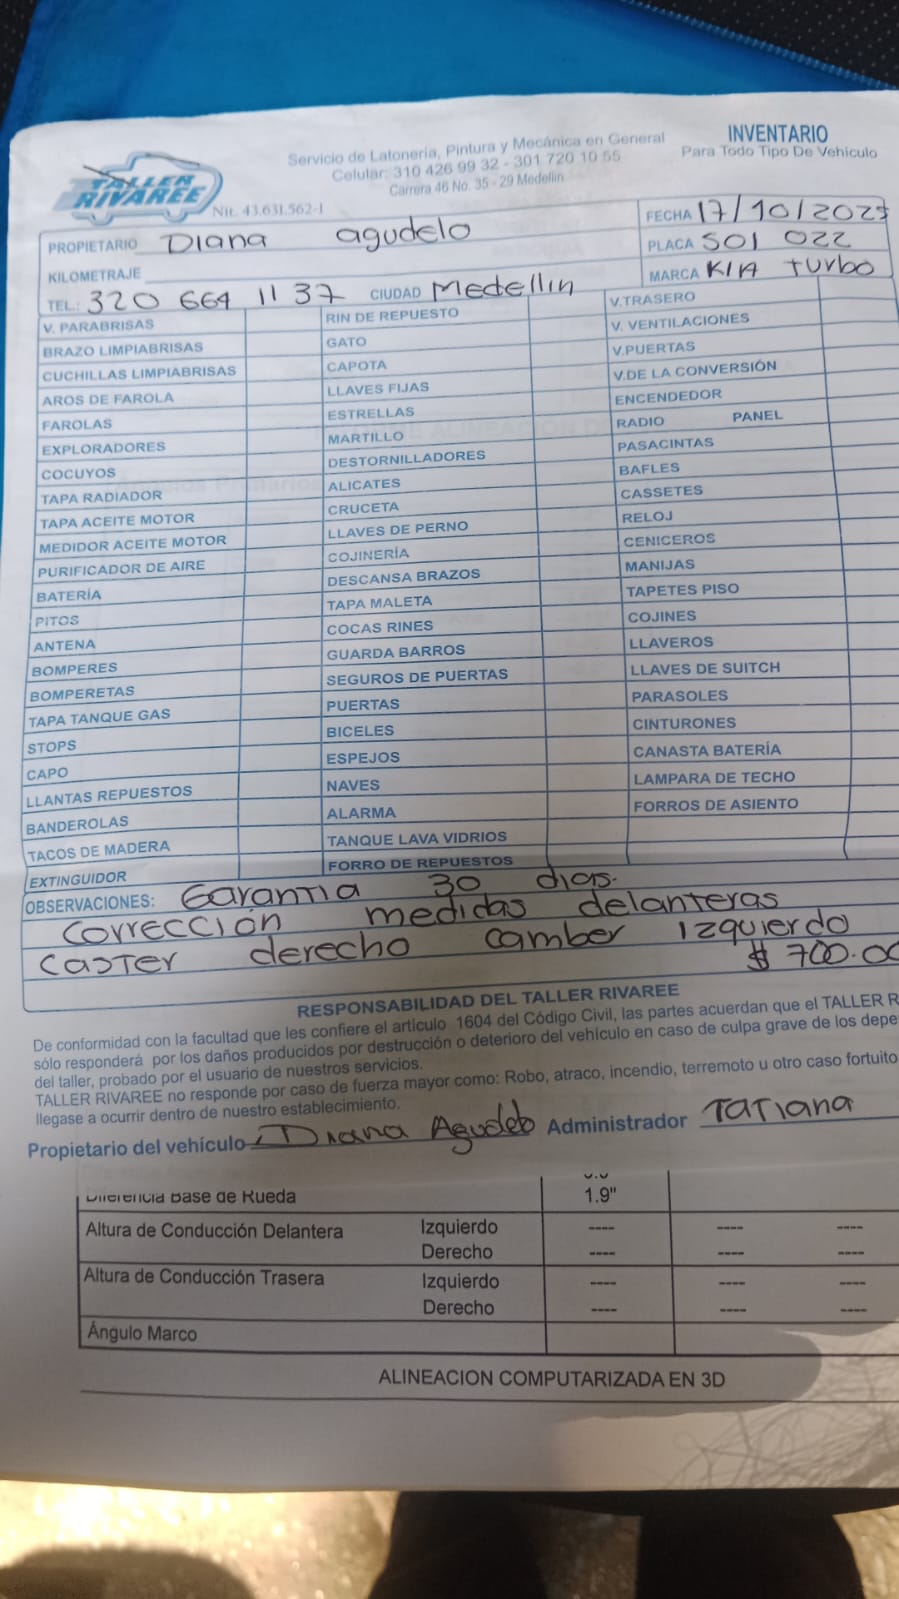 TALLER
RIVAREE
Nit. 43.631.562-1
Servicio de Latonería, Pintura y Mecánica en General
Celular: 310 426 99 32 - 301 720 10 55
Carrera 46 No. 35 - 29 Medellin
INVENTARIO
Para Todo Tipo De Vehículo
PROPIETARIO Diana agudelo
FECHA 17/10/2023
KILOMETRAJE
PLACA SOI 022
TEL.: 320 664 11 37 CIUDAD Medellin
MARCA KIA Turbo
V. PARABRISAS RIN DE REPUESTO V.TRASERO
BRAZO LIMPIABRISAS GATO V. VENTILACIONES
CUCHILLAS LIMPIABRISAS CAPOTA V.PUERTAS
AROS DE FAROLA LLAVES FIJAS V.DE LA CONVERSIÓN
FAROLAS ESTRELLAS ENCENDEDOR
EXPLORADORES MARTILLO RADIO PANEL
COCUYOS DESTORNILLADORES PASACINTAS
TAPA RADIADOR ALICATES BAFLES
TAPA ACEITE MOTOR CRUCETA CASSETES
MEDIDOR ACEITE MOTOR LLAVES DE PERNO RELOJ
PURIFICADOR DE AIRE COJINERÍA CENICEROS
BATERÍA DESCANSA BRAZOS MANIJAS
PITOS TAPA MALETA TAPETES PISO
ANTENA COCAS RINES COJINES
BOMPERES GUARDA BARROS LLAVEROS
BOMPERETAS SEGUROS DE PUERTAS LLAVES DE SUITCH
TAPA TANQUE GAS PUERTAS PARASOLES
STOPS BICELES CINTURONES
CAPO ESPEJOS CANASTA BATERÍA
LLANTAS REPUESTOS NAVES LAMPARA DE TECHO
BANDEROLAS ALARMA FORROS DE ASIENTO
TACOS DE MADERA TANQUE LAVA VIDRIOS
EXTINGUIDOR FORRO DE REPUESTOS
OBSERVACIONES: Garantia 30 dias.
Corrección medidas delanteras
Caster derecho camber Izquierdo
$ 700.00
RESPONSABILIDAD DEL TALLER RIVAREE
De conformidad con la facultad que les confiere el articulo 1604 del Código Civil, las partes acuerdan que el TALLER R
sólo responderá por los daños producidos por destrucción o deterioro del vehículo en caso de culpa grave de los depe
del taller, probado por el usuario de nuestros servicios.
TALLER RIVAREE no responde por caso de fuerza mayor como: Robo, atraco, incendio, terremoto u otro caso fortuito
llegase a ocurrir dentro de nuestro establecimiento.
Propietario del vehículo Diana Agudelo Administrador Tatiana
Diferencia Base de Rueda 1.9"
Altura de Conducción Delantera Izquierdo ---- ---- ----
Derecho ---- ---- ----
Altura de Conducción Trasera Izquierdo ---- ---- ----
Derecho ---- ---- ----
Ángulo Marco
ALINEACION COMPUTARIZADA EN 3D